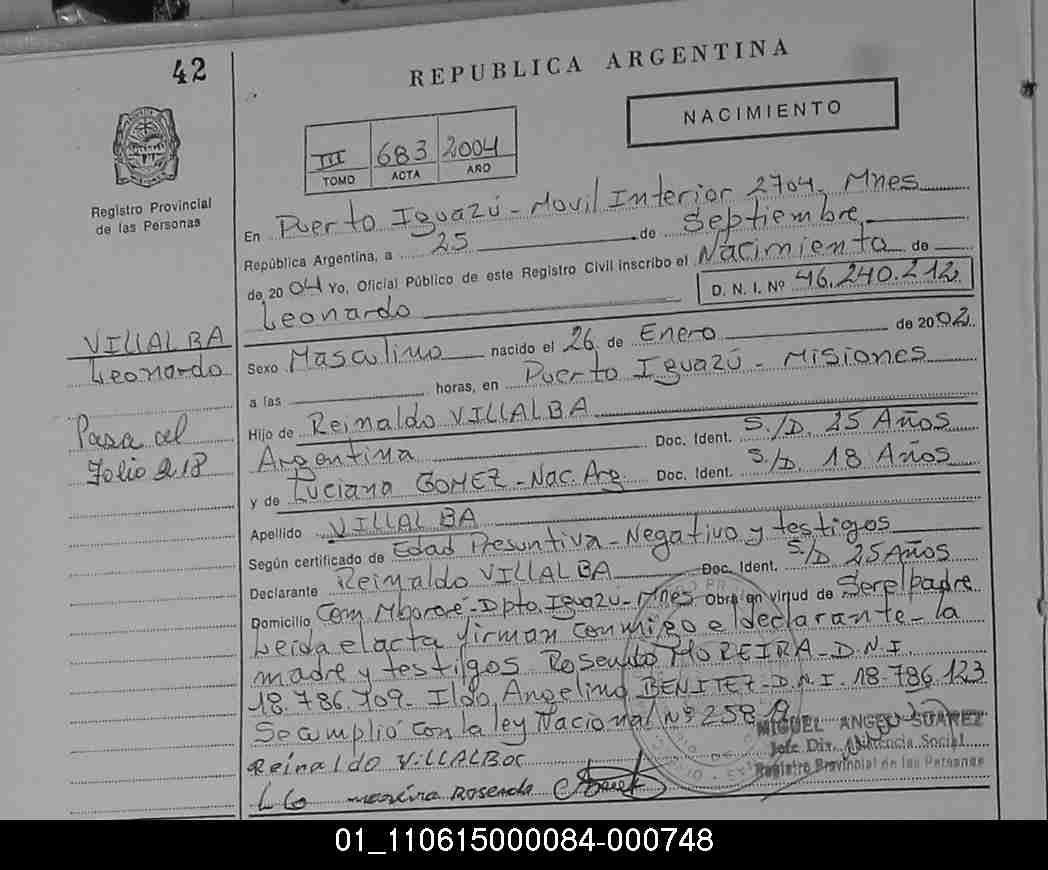 42
REPUBLICA ARGENTINA
NACIMIENTO
III 683 2004
TOMO ACTA AÑO
Registro Provincial
de las Personas
En Puerto Iguazú - Movil Interior 2704, Mnes
República Argentina, a 25 de Septiembre
de 2004 Yo, Oficial Público de este Registro Civil inscribo el Nacimiento de
Leonardo D. N. I. Nº 46.240.212
VILLALBA
Leonardo
Sexo Masculino nacido el 26 de Enero de 2002
a las horas, en Puerto Iguazú - Misiones
Pasa al
Folio 218
Hijo de Reinaldo VILLALBA
Argentina Doc. Ident. S/D. 25 Años
y de Luciana GOMEZ - Nac. Arg Doc. Ident. S/D. 18 Años
Apellido VILLALBA
Según certificado de Edad Presuntiva - Negativo y testigos
Declarante Reinaldo VILLALBA Doc. Ident. S/D 25 Años
Domicilio Com Mbororé - Dpto. Iguazú - Mnes Obra en virtud de Ser el padre
Leida el acta firman conmigo el declarante - la
madre y testigos Rosendo MOREIRA - D.N.I.
18.786.109 - Ildo Angelino BENITEZ - D.N.I. 18.786.123
Se cumplió con la ley Nacional Nº
MIGUEL ANGEL SUAREZ
Jefe Div. Asistencia Social
Registro Provincial de las Personas
Reinaldo VILLALBA
moreira Rosendo
01_110615000084-000748